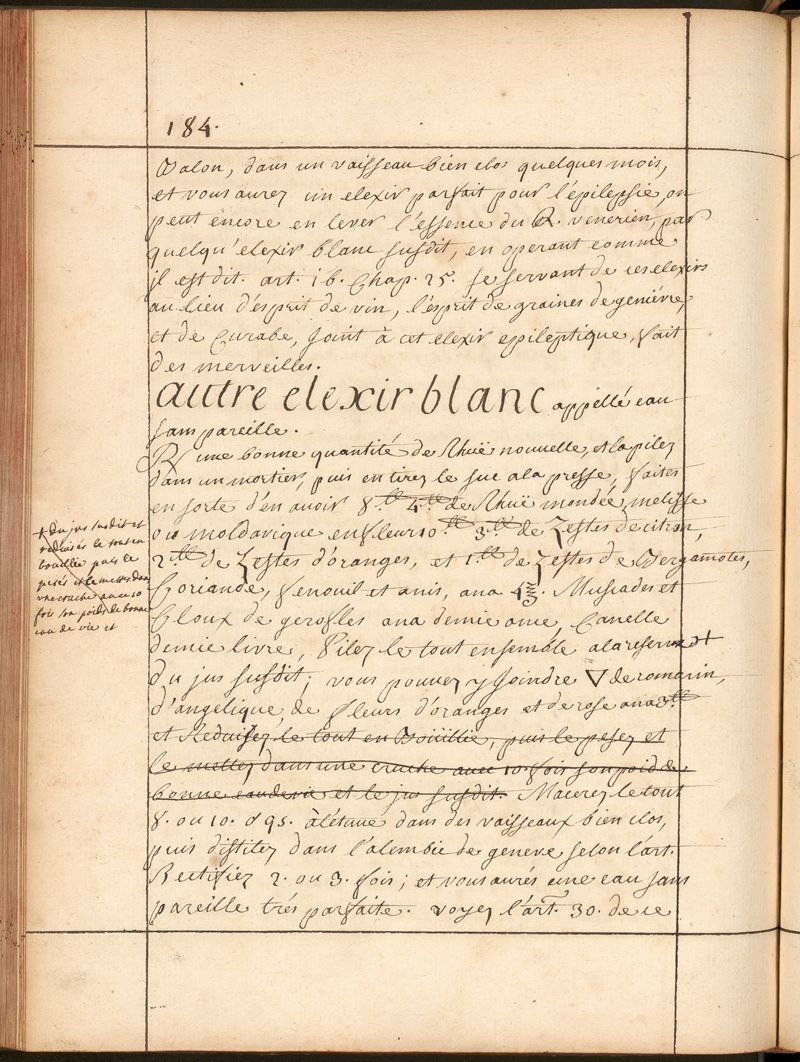 184.
Valon, dans un vaisseau bien clos quelques mois,
et vous aurez un elexir parfait pour l'épilepsie, on
peut encore en lever l'essence du R. venerien, par
quelqu'elexir blanc susdit, en operant comme
il est dit. art. 16. Chap. 25. se servant de ces elexirs
au lieu d'esprit de vin, l'esprit de graines de geniévre,
et de Carabe, joint à cet elexir epileptique, fait
des merveilles.
autre elexir blanc appellé eau
sans pareille.
une bonne quantité de Rhuë nouvelle, et la pilez
dans un mortier, puis en tirez le suc a la presse, faites
en sorte d'en avoir 8.lb 4.lb de Rhuë mondée, melisse
ou moldavique en fleur 10.lb 3.lb de Zestes de citron,
2.lb de Zestes d'oranges, et 1.lb de Zestes de Bergamotes,
Coriande, fenouil et anis, ana 4℥. Muscades et
Cloux de gerofles ana demie once, Canelle
demie livre, Pilez le tout ensemble a la reserve +
du jus susdit; vous pouvez y joindre ▽ de romarin,
d'angélique, de fleurs d'oranges et de rose ana 3.lb
et Reduisez le tout en Boüillie, puis le pesez et
le mettez dans une cruche avec 10. fois son poid de
bonne eau de vie et le jus susdit. Macerez le tout
8. ou 10. js. à l'étuve dans des vaisseaux bien clos,
puis distilez dans l'alembic de geneve selon l'art.
Rectifiez 2. ou 3. fois; et vous aurés une eau sans
pareille trés parfaite. voyez l'art. 30. de ce
+ Du jus susdit et
reduisés le tout en
bouillie puis le
pesés et le mettez dans
une cruche avec 10
fois son poids de bonne
eau de vie et